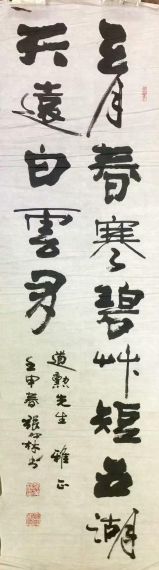 三月春寒碧艸短五湖
天遠白雲多
道勳先生 雅正
壬申春張林书